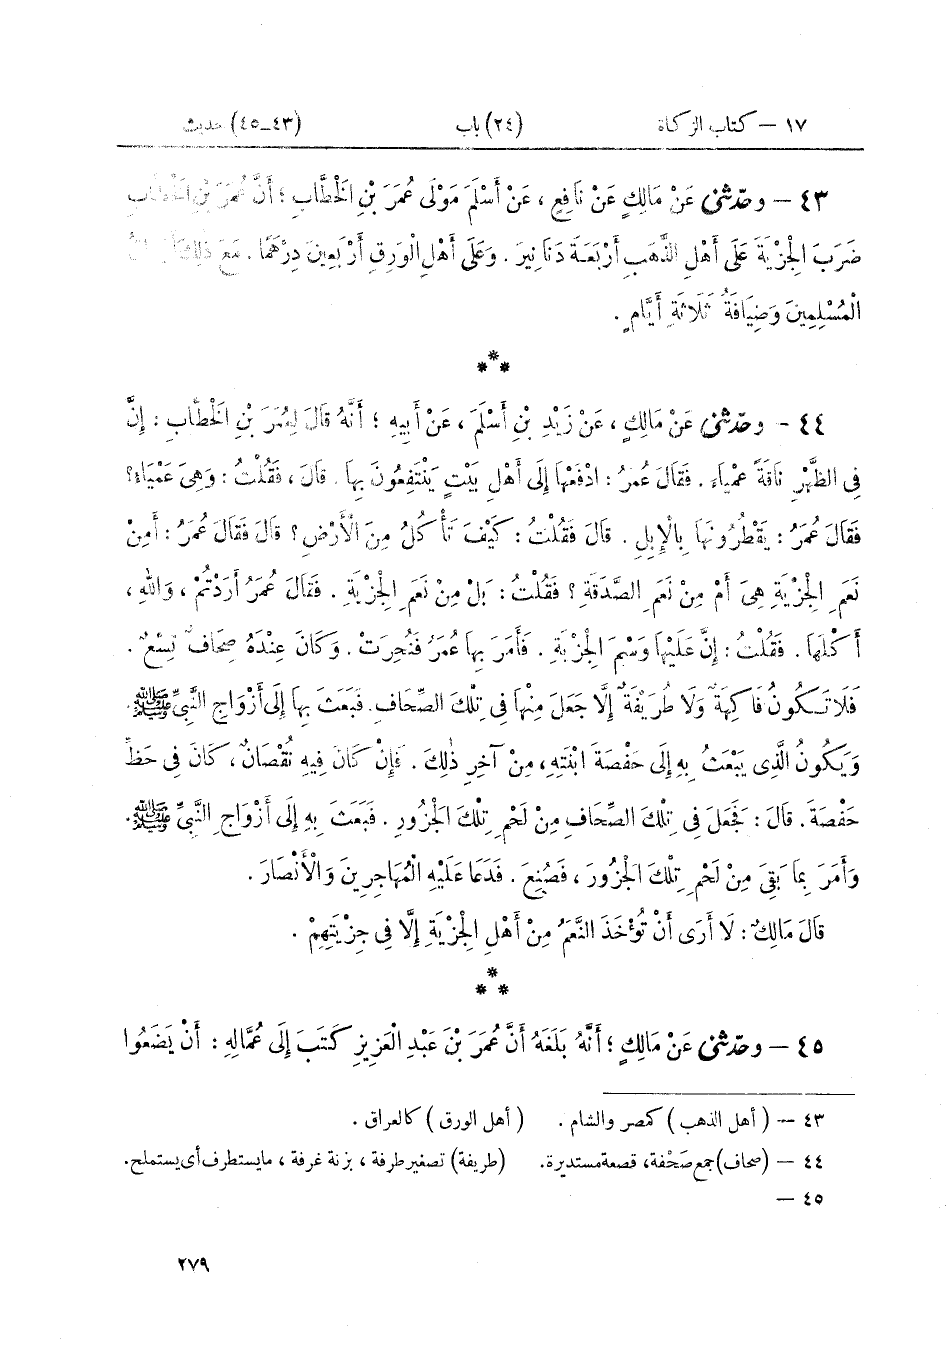 ١٧ — كتاب الزكاة (٢٤) باب (٤٣_٤٥) حديث
٤٣ — وحدّثنى عَنْ مَالِكٍ عَنْ نَافِعٍ ، عَنْ أَسْلَمَ مَوْلَى عُمَرَ بْنِ الْخَطَّابِ ؛ أَنَّ عُمَرَ بْنَ الْخَطَّابِ
ضَرَبَ الْجِزْيَةَ عَلَى أَهْلِ الذَّهَبِ أَرْبَعَةَ دَنَانِيرَ . وَعَلَى أَهْلِ الْوَرِقِ أَرْبَعِينَ دِرْهَمًا . مَعَ ذٰلِكَ
الْمُسْلِمِينَ وَضِيَافَةُ ثَلَاثَةِ أَيَّامٍ .
***
٤٤ - وحدّثنى عَنْ مَالِكٍ ، عَنْ زَيْدِ بْنِ أَسْلَمَ ، عَنْ أَبِيهِ ؛ أَنَّهُ قَالَ لِعُمَرَ بْنِ الْخَطَّابِ : إِنَّ
فِى الظَّهْرِ نَاقَةً عَمْيَاءَ . فَقَالَ عُمَرُ : ادْفَعْهَا إِلَى أَهْلِ بَيْتٍ يَنْتَفِعُونَ بِهَا . قَالَ ، فَقُلْتُ : وَهِىَ عَمْيَاءُ ؟
فَقَالَ عُمَرُ : يَقْطُرُونَهَا بِالْإِبِلِ . قَالَ فَقُلْتُ : كَيْفَ تَأْكُلُ مِنَ الْأَرْضِ ؟ قَالَ فَقَالَ عُمَرُ : أَمِنْ
نَعَمِ الْجِزْيَةِ هِىَ أَمْ مِنْ نَعَمِ الصَّدَقَةِ ؟ فَقُلْتُ : بَلْ مِنْ نَعَمِ الْجِزْيَةِ . فَقَالَ عُمَرُ أَرَدْتُمْ ، وَاللهِ ،
أَكْلَهَا . فَقُلْتُ : إِنَّ عَلَيْهَا وَسْمَ الْجِزْيَةِ . فَأَمَرَ بِهَا عُمَرُ فَنُحِرَتْ . وَكَانَ عِنْدَهُ صِحَافٌ تِسْعٌ .
فَلَا تَكُونُ فَاكِهَةٌ وَلَا طُرَيْفَةٌ إِلَّا جَعَلَ مِنْهَا فِى تِلْكَ الصِّحَافِ . فَبَعَثَ بِهَا إِلَى أَزْوَاجِ النَّبِىِّ ﷺ .
وَيَكُونُ الَّذِى يَبْعَثُ بِهِ إِلَى حَفْصَةَ ابْنَتِهِ ، مِنْ آخِرِ ذٰلِكَ . فَإِنْ كَانَ فِيهِ نُقْصَانٌ ، كَانَ فِى حَظِّ
حَفْصَةَ . قَالَ : فَجَعَلَ فِى تِلْكَ الصِّحَافِ مِنْ لَحْمِ تِلْكَ الْجَزُورِ . فَبَعَثَ بِهِ إِلَى أَزْوَاجِ النَّبِىِّ ﷺ .
وَأَمَرَ بِمَا بَقِىَ مِنْ لَحْمِ تِلْكَ الْجَزُورِ ، فَصُنِعَ . فَدَعَا عَلَيْهِ الْمُهَاجِرِينَ وَالْأَنْصَارَ .
قَالَ مَالِكٌ : لَا أَرَى أَنْ تُؤْخَذَ النَّعَمُ مِنْ أَهْلِ الْجِزْيَةِ إِلَّا فِى جِزْيَتِهِمْ .
***
٤٥ — وحدّثنى عَنْ مَالِكٍ ؛ أَنَّهُ بَلَغَهُ أَنَّ عُمَرَ بْنَ عَبْدِ الْعَزِيزِ كَتَبَ إِلَى عُمَّالِهِ : أَنْ يَضَعُوا
٤٣ — ( أهل الذهب ) كمصر والشام . ( أهل الورق ) كالعراق .
٤٤ — (صحاف) جمع صَحْفة، قصعة مستديرة. (طريفة) تصغير طرفة ، بزنة غرفة ، ما يستطرف أى يستملح.
٤٥ —
٢٧٩